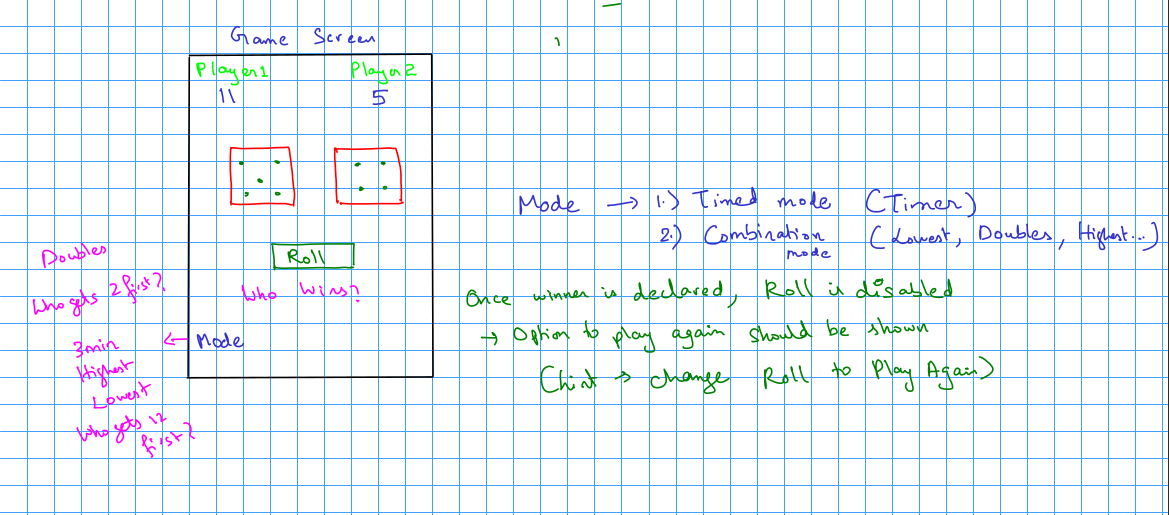 Game Screen
Player1 Player2
11 5
Roll
Who Wins?
Mode
Doubles
Who gets 2 first?
3min
Highest
Lowest
Who gets 12
first?
Mode → 1.) Timed mode (Timer)
2.) Combination (Lowest, Doubles, Highest...)
mode
Once winner is declared, Roll is disabled
→ Option to play again should be shown
(hint → change Roll to Play Again)